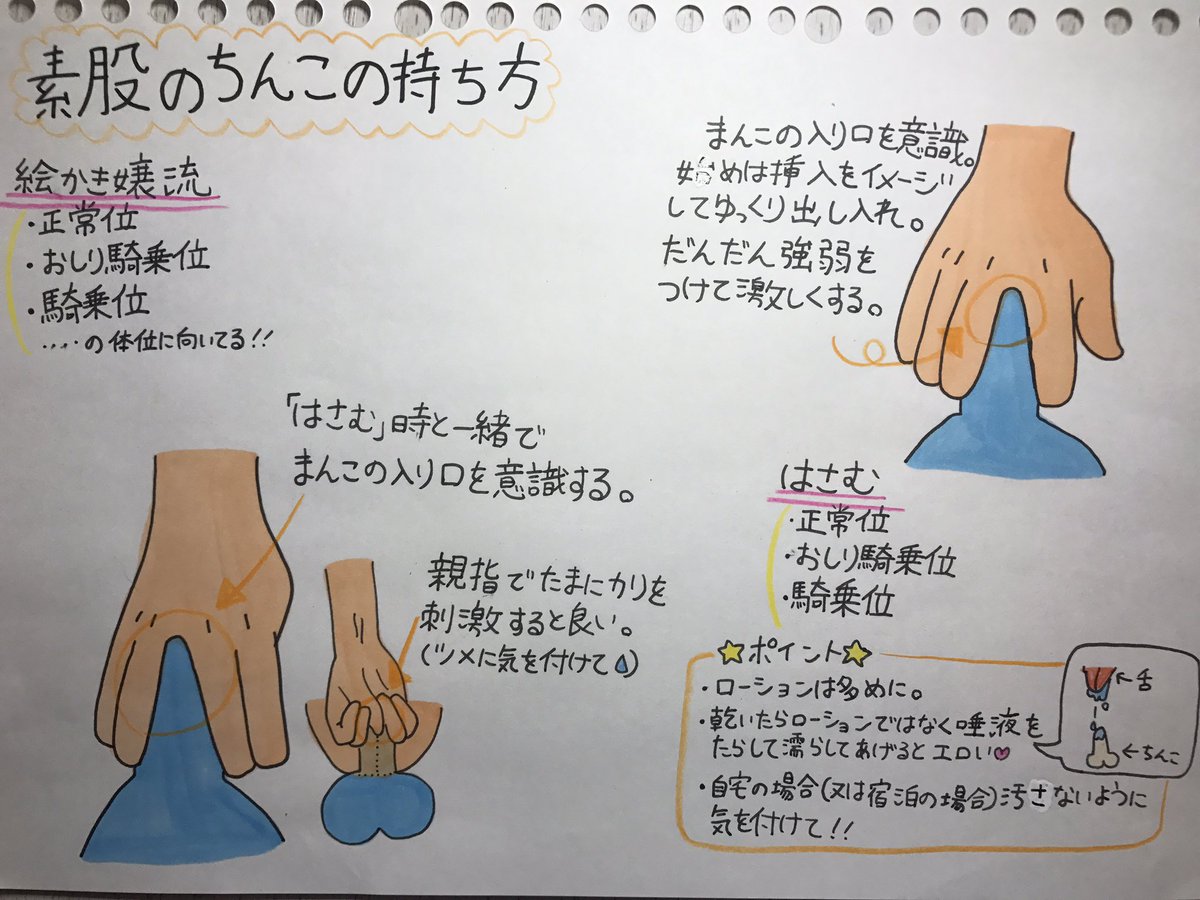 素股のちんこの持ち方
絵かき嬢流
・正常位
・おしり騎乗位
・騎乗位
....の体位に向いてる!!
まんこの入り口を意識。
始めは挿入をイメージ
してゆっくり出し入れ。
だんだん強弱を
つけて激しくする。
「はさむ」時と一緒で
まんこの入り口を意識する。
親指でたまにカリを
刺激すると良い。
(ツメに気を付けて)
はさむ
・正常位
・おしり騎乗位
・騎乗位
ポイント
・ローションは多めに。
・乾いたらローションではなく唾液を
たらして濡らしてあげるとエロい
・自宅の場合(又は宿泊の場合)汚さないように
気を付けて!!
←舌
←ちんこ